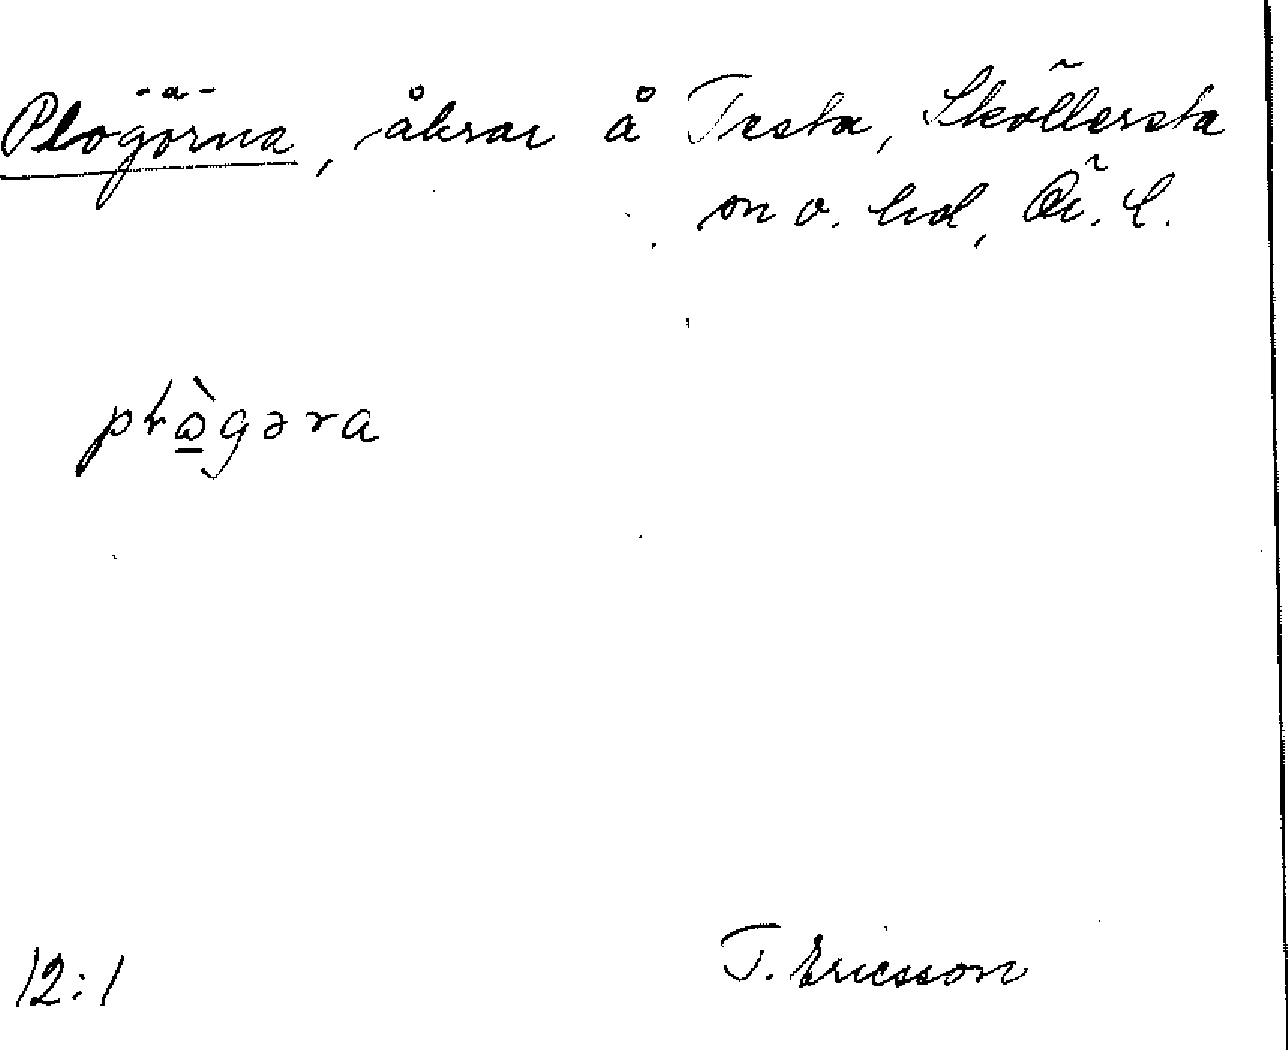 -a-
Plogörna, åkrar å Testa, Sköllersta
sn o. hd, Ör. l.
pɫògəra
12:1
T. Ericsson